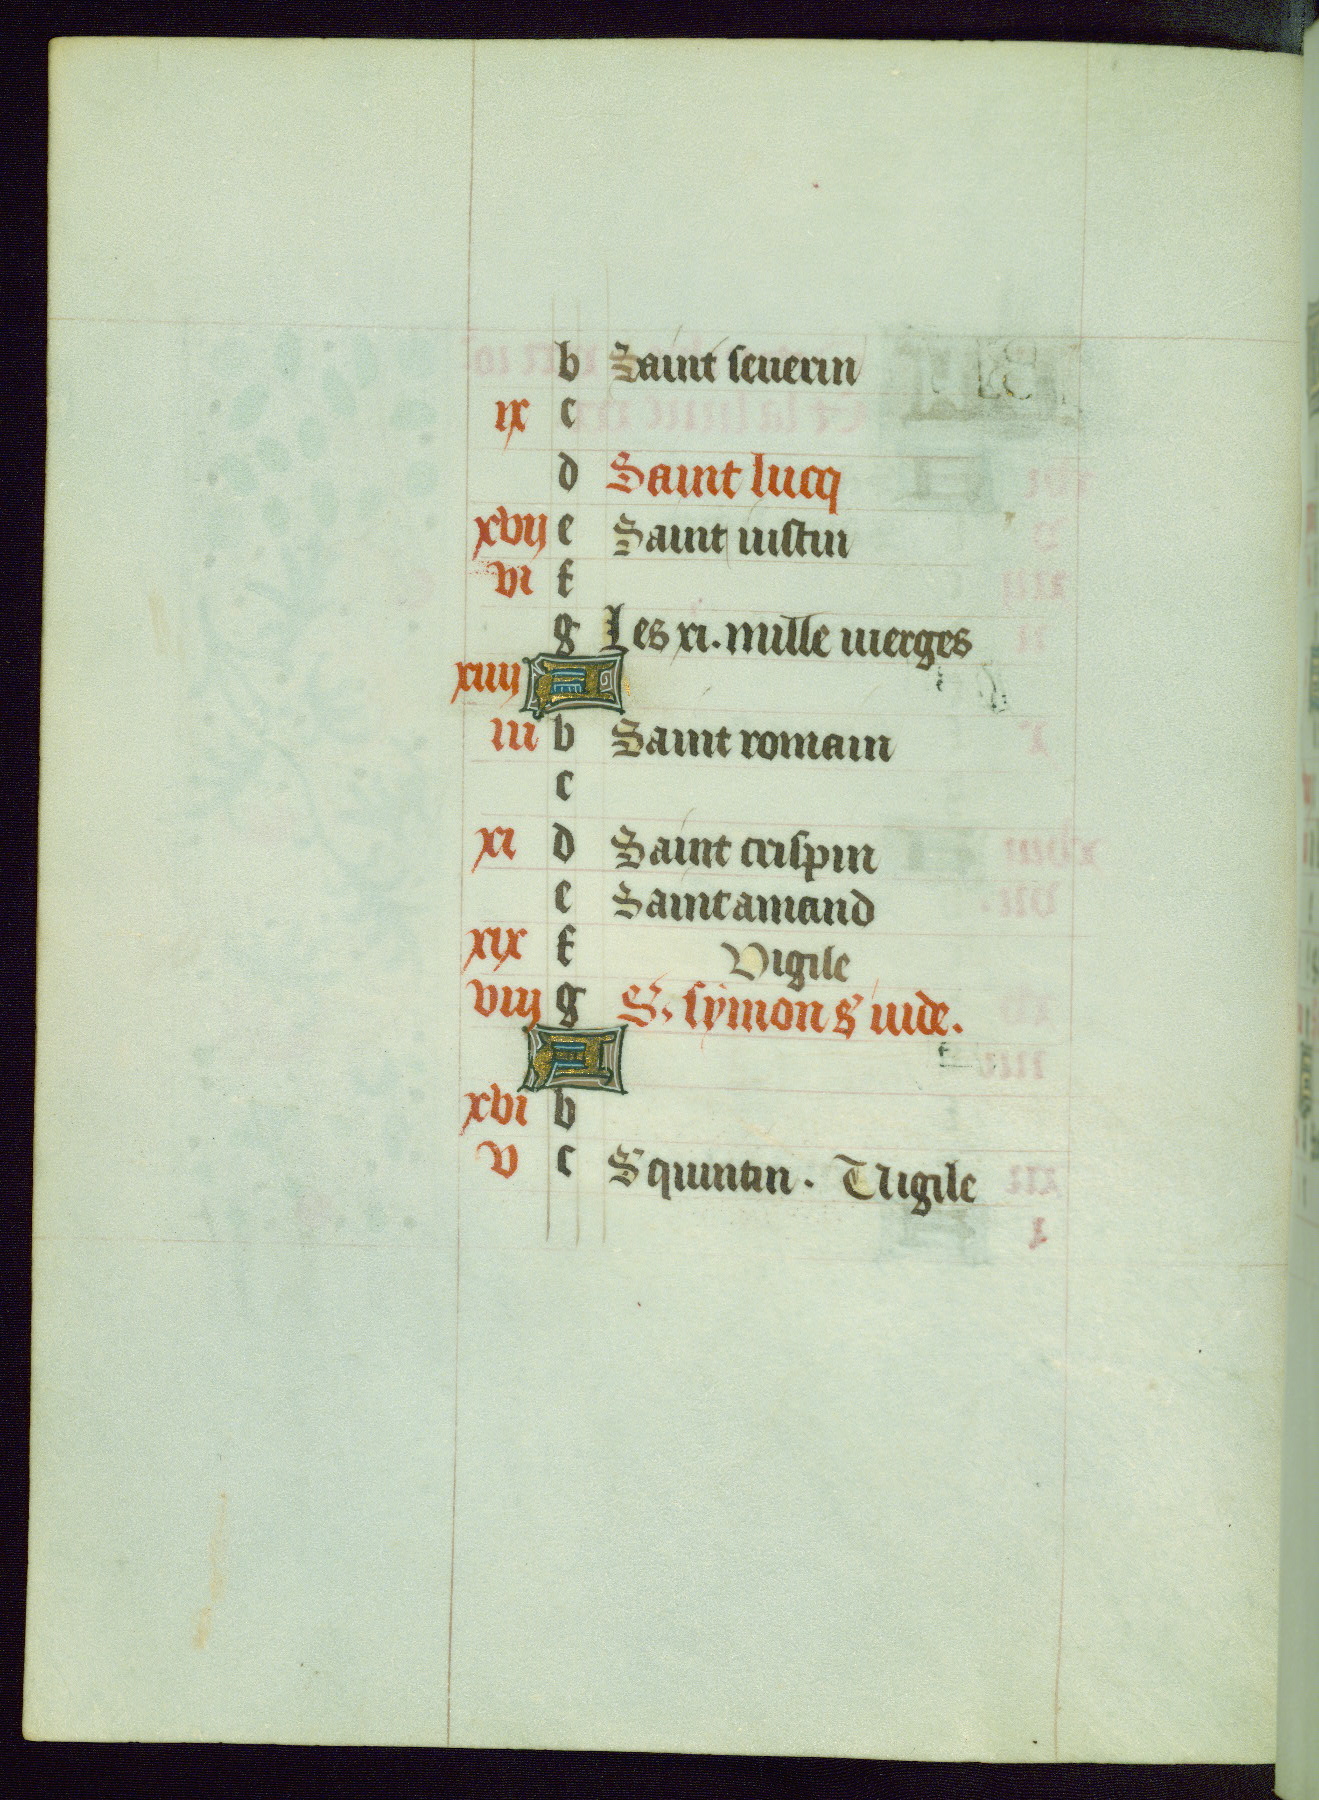 b Saint seuerin
ix c
d Saint lucq
xvij e Saint iustin
vi f
g Les xi. mille vierges
xiiij A
iii b Saint romain
c
xi d Saint crispin
e Saint amand
xix f Vigile
viij g S. symon & iude.
A
xvi b
v c S quintin. Vigile